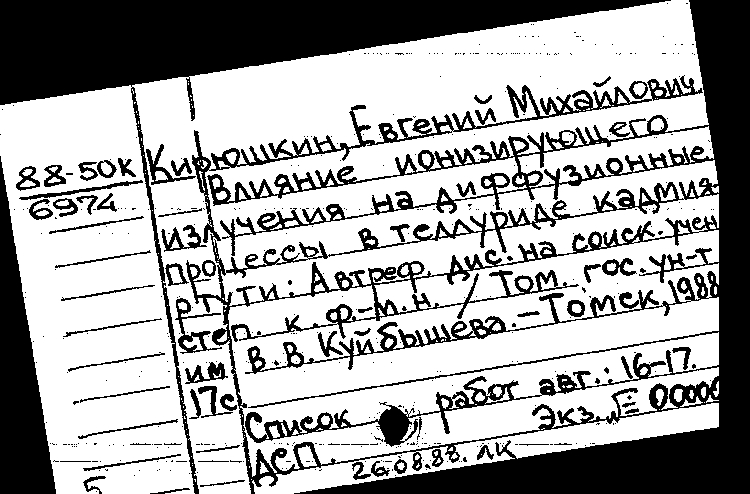 88-50К
6974
Кирюшкин, Евгений Михайлович.
Влияние ионизирующего
излучения на диффузионные
процессы в теллуриде кадмия-
ртути: Автреф. дис. на соиск. учен
степ. к. ф.-м.н. / Том. гос. ун-т
им В.В. Куйбышева.-Томск, 1988
17с.
Список работ авт.: 16-17.
ДСП. Экз. 00000
26.08.88. ЛК
5